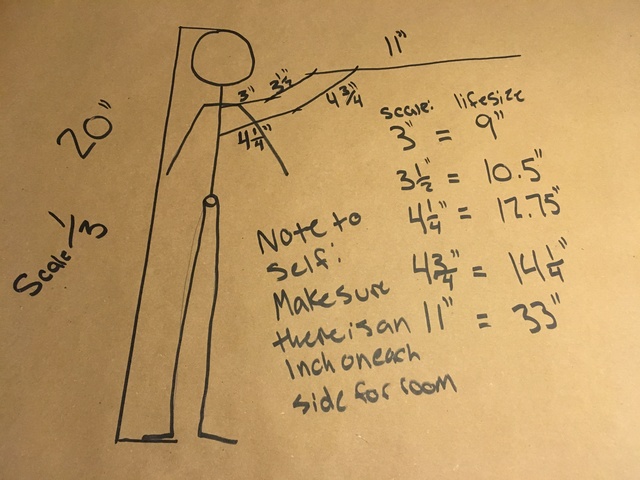 11"
3"
3½"
4¾"
4¼"
20"
Scale 1/3
scale: lifesize
3" = 9"
3½" = 10.5"
4¼" = 12.75"
4¾" = 14¼"
11" = 33"
Note to
self:
Make sure
there is an
Inch on each
side for room